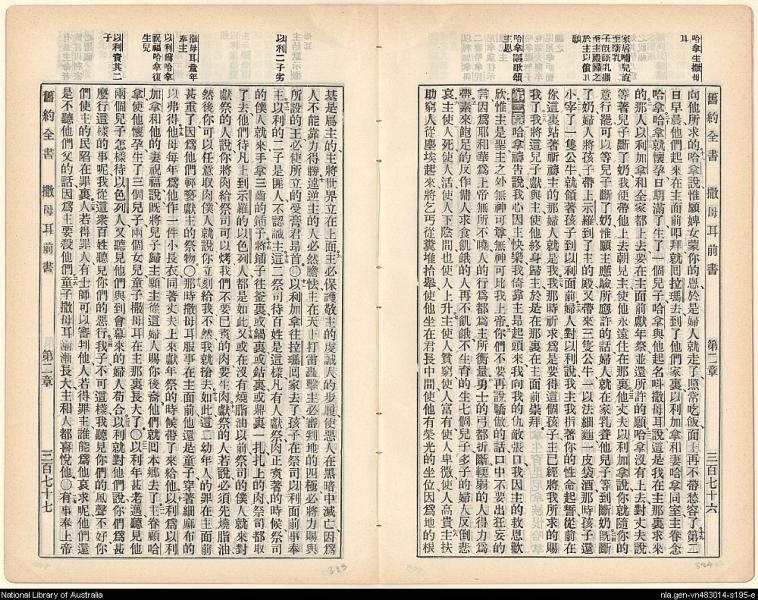 哈拿生撒母耳
哈拿謳歌頌主恩
舊約全書 撒母耳前書 第二章 三百七十六
向他所求的哈拿說惟願婢女蒙你的恩於是婦人就走了照常吃飯面上再不帶愁容了第二
日早晨他們起來在主面前叩拜就回拉瑪去到了他們家裏以利加拿和妻哈拿同室主眷念
哈拿哈拿就懷孕日期滿了生了一個兒子哈拿與他起名呌撒母耳說這是我在主那裏求來
的那人以利加拿和全家都上去要在主面前獻年祭並還所許的願哈拿沒有上去對丈夫說
等著兒子斷了奶我便帶他上去朝見主使他永遠住在那裏他丈夫以利加拿說你就隨你的
意行罷可以等兒子斷了奶惟願主應驗所應許的話婦人就在家乳養他兒子等到斷奶既斷
了奶婦人將孩子帶上示羅到了主的殿又帶來三隻公牛一以法細麵一皮袋酒那時孩子還
小宰了一隻公牛就領著孩子到以利面前婦人對以利說我主我指著你的性命起誓從前在
你這裏站著祈禱主的那婦人就是我我那時祈求爲是要得這個孩子主已經將我所求的賜
我了我將這兒子獻與主使他終身歸主於是在那裏在主面前崇拜
第二章哈拿禱告說我心因主快樂我倚靠主是起頭來我向我的仇敵張口我因主的救恩歡
欣惟主是聖主之外無神可尊無神可比我上帝你們不要再說驕傲的話口中不要出狂妄的
言因爲耶和華爲上帝無所不曉人的行爲都爲主所衡量勇士的弓都折斷軟弱的人得力爲
帶素來飽足的反作傭人求食飢餓的人再不飢餓不生育的生七個兒子多子的婦人反倒悲
哀主使人死使人活使人下陰間也使人上升主使人貧窮使人富有使人卑微使人高貴主扶
助窮人從塵埃起來將乞丐從糞堆抬舉使他坐在君長中間使他有榮光的坐位因爲地的根
以利二子劣
撒母耳童年奉主
以利爲哈拿祝福哈拿復生兒
以利責其二子
基是屬主的主將世界立在上面主必保護敬主的虔誠人的步履使惡人在黑暗中滅亡因爲
人不能靠力得勝違逆主的人必然膽怯主在天上打雷轟擊主必審判地的四極必將力賜與
所設的王必使所立的受膏君昂首〇以利加拿往拉瑪回家去了孩子在祭司以利面前事奉
主以利的二子是匪人不認識主這二祭司待百姓是這樣凡有人獻祭肉正煮著的時候祭司
的僕人就來手拿三齒的鍤子將鍤子往釜裏或鍋裏或鉆裏或鼎裏一扎扎上的肉祭司都取
了去他們待凡上到示羅的以色列人都是如此又或在沒有燒脂油以前祭司的僕人就來對
獻祭的人說你將肉給祭司可以烤我們不要已煮的肉要生肉獻祭的人若說必須先燒脂油
然後你可以任意取肉僕人就說你立刻給我不然我就搶去如此這二幼年人的罪在主面前
甚重了因爲他們輕褻獻主的祭物〇那時撒母耳服事在主面前他還是童子穿著細麻布的
以弗得他母每年爲他作一件小長衣同著丈夫上來獻年祭的時候帶了來給他以利爲以利
加拿和他的妻祝福說既將兒子歸主願主從這婦人賜你後裔他們就回本鄉去了主眷顧哈
拿使他懷孕生了三個兒子兩個女兒童子撒母耳在主那裏長大了〇以利年甚老邁聽見他
兩個兒子怎樣待以色列人又聽見他們與到會幕來的婦人苟合以利就對他們說你們爲甚
麼行這樣的事呢我從這衆百姓聽見你們的惡行我子不可這樣我聽見你們的風聲不好你
們使主的民陷在罪裏人若得罪人有士師可以審判他人若得罪主誰能爲他哀求呢他們還
是不聽他們父的話因爲主要殺他們童子撒母耳漸漸長大主和人都喜悅他〇有事奉上帝
舊約全書 撒母耳前書 第二章 三百七十七
National Library of Australia
nla.gen-vn483014-s195-e